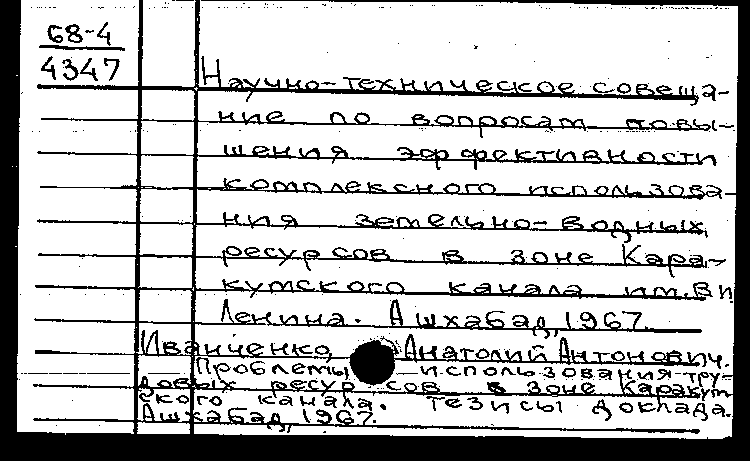 68-4
4347
Научно-техническое совеща-
ние по вопросам повы-
шения эффективности
комплексного использова-
ния земельно-водных
ресурсов в зоне Кара-
кумского канала им. В И
Ленина. Ашхабад, 1967.
Иванченко, Анатолий Антонович.
Проблемы использования тру-
довых ресурсов в зоне Каракум
ского канала. Тезисы доклада.
Ашхабад, 1967.